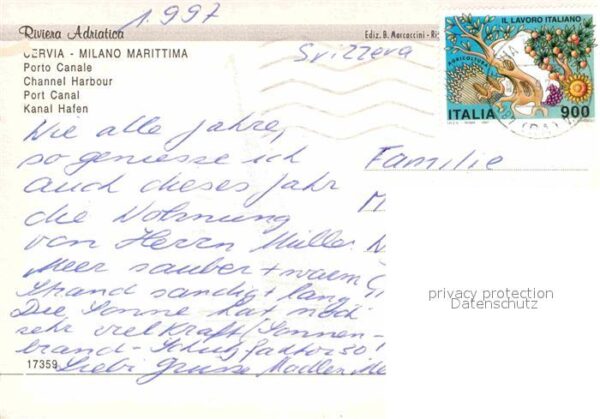 1.997
Riviera Adriatica
Ediz. B. Marcaccini - Ri
CERVIA - MILANO MARITTIMA
Porto Canale
Channel Harbour
Port Canal
Kanal Hafen
Svizzera
IL LAVORO ITALIANO
AGRICOLTURA
ITALIA 900
Wie alle Jahre,
so geniesse ich
auch dieses Jahr
die Wohnung
von Herrn Müller.
Meer sauber + warm
Strand sandig + lang
Die Sonne hat noch
sehr viel Kraft (Sonnen-
brand - Schutzfaktor 50!
Liebi Grüsse
Familie
privacy protection
Datenschutz
17359